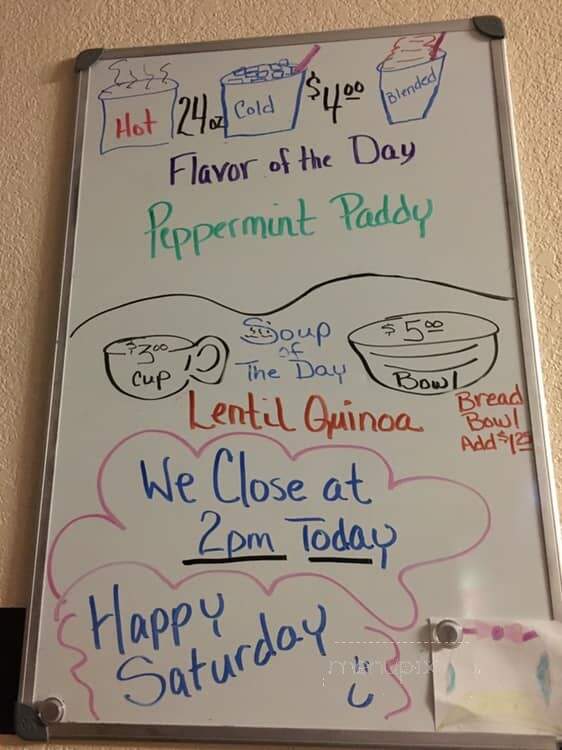 Hot 24oz Cold $4.00 Blended
Flavor of the Day
Peppermint Paddy
$3.00 Cup
Soup
of
The Day
$5.00
Bowl
Lentil Quinoa
Bread
Bowl
Add $1.25
We Close at
2pm Today
Happy
Saturday